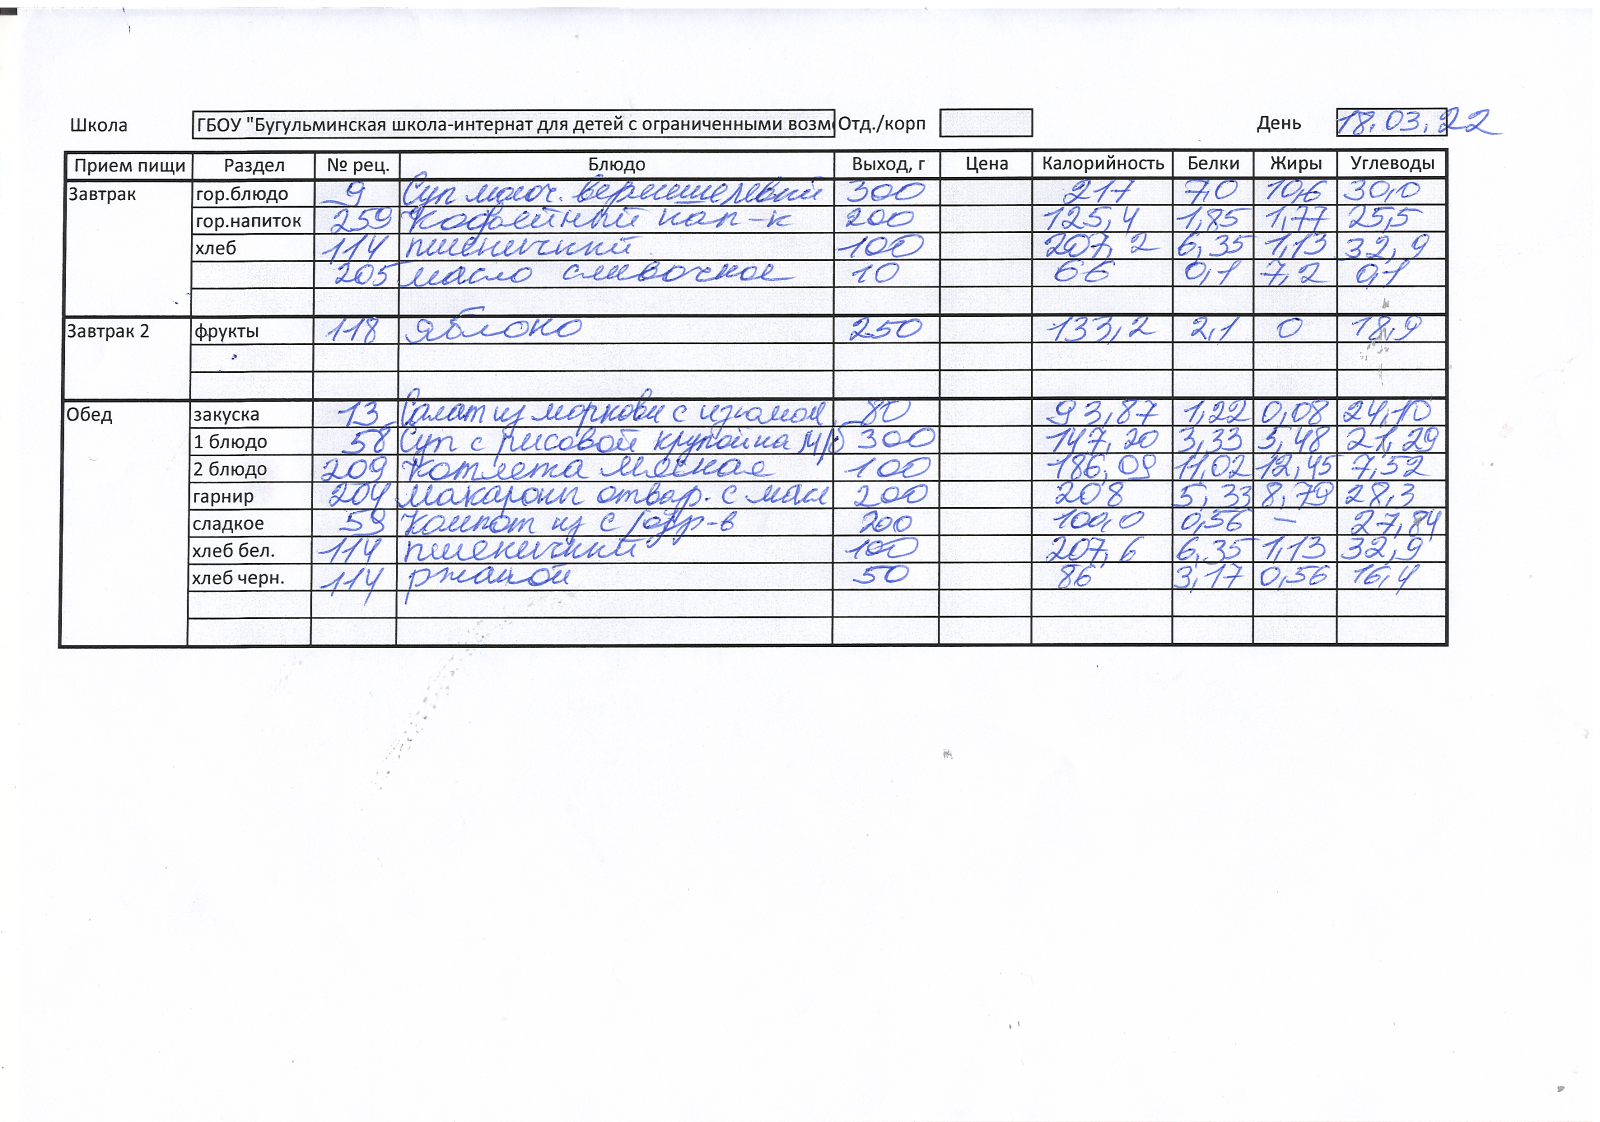 Школа ГБОУ "Бугульминская школа-интернат для детей с ограниченными возм Отд./корп День 18.03.22
Прием пищи Раздел № рец. Блюдо Выход, г Цена Калорийность Белки Жиры Углеводы
Завтрак гор.блюдо 9 Суп молоч. вермишелевый 300 217 7,0 10,6 30,0
гор.напиток 259 Кофейный нап-к 200 125,4 1,85 1,77 25,5
хлеб 114 пшеничный 100 207,2 6,35 1,13 32,9
205 масло сливочное 10 66 0,1 7,2 0,1
Завтрак 2 фрукты 118 яблоко 250 133,2 2,1 0 18,9
Обед закуска 13 Салат из моркови с изюмом 80 93,87 1,22 0,08 24,10
1 блюдо 58 Суп с рисовой крупой на м/б 300 147,20 3,33 5,48 21,29
2 блюдо 209 Котлета мясная 100 186,09 11,02 12,45 7,52
гарнир 204 Макароны отвар. с масл 200 208 5,33 8,79 28,3
сладкое 59 Компот из с/фр-в 200 100,0 0,56 — 27,84
хлеб бел. 114 пшеничный 100 207,6 6,35 1,13 32,9
хлеб черн. 114 ржаной 50 86 3,17 0,56 16,4